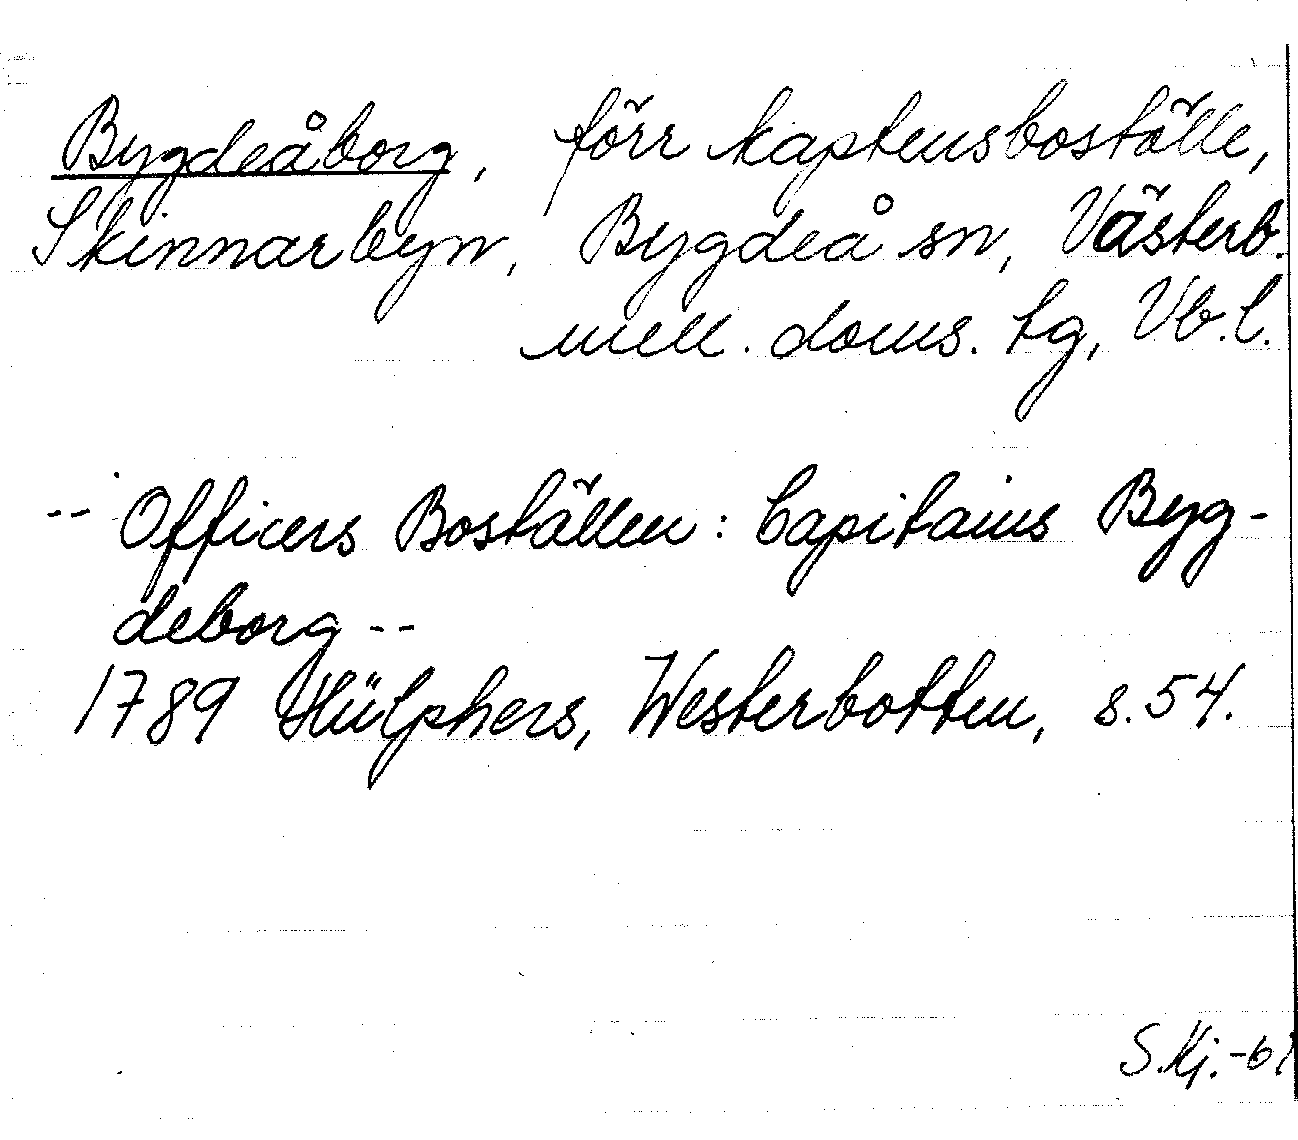 Bygdeåborg, förr kaptensboställe,
Skinnarbyn, Bygdeå sn, Västerb.
mell. doms. tg, Vb. l.
-- Officers Boställen: Capitains Byg-
deborg --
1789 Hülphers, Westerbotten, s. 54.
S. Kj.